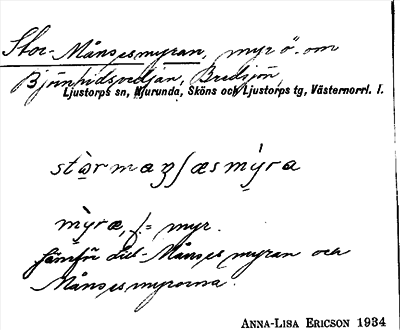 Stor-Månsesmyran, myr ö. om
Björnhidsvedjan, Bredsjön,
Ljustorps sn, Njurunda, Sköns och Ljustorps tg, Västernorrl. l.
myra, f. = myr.
Jämför Lill-Månsesmyran och
Månsesmyrorna.
ANNA-LISA ERICSON 1934